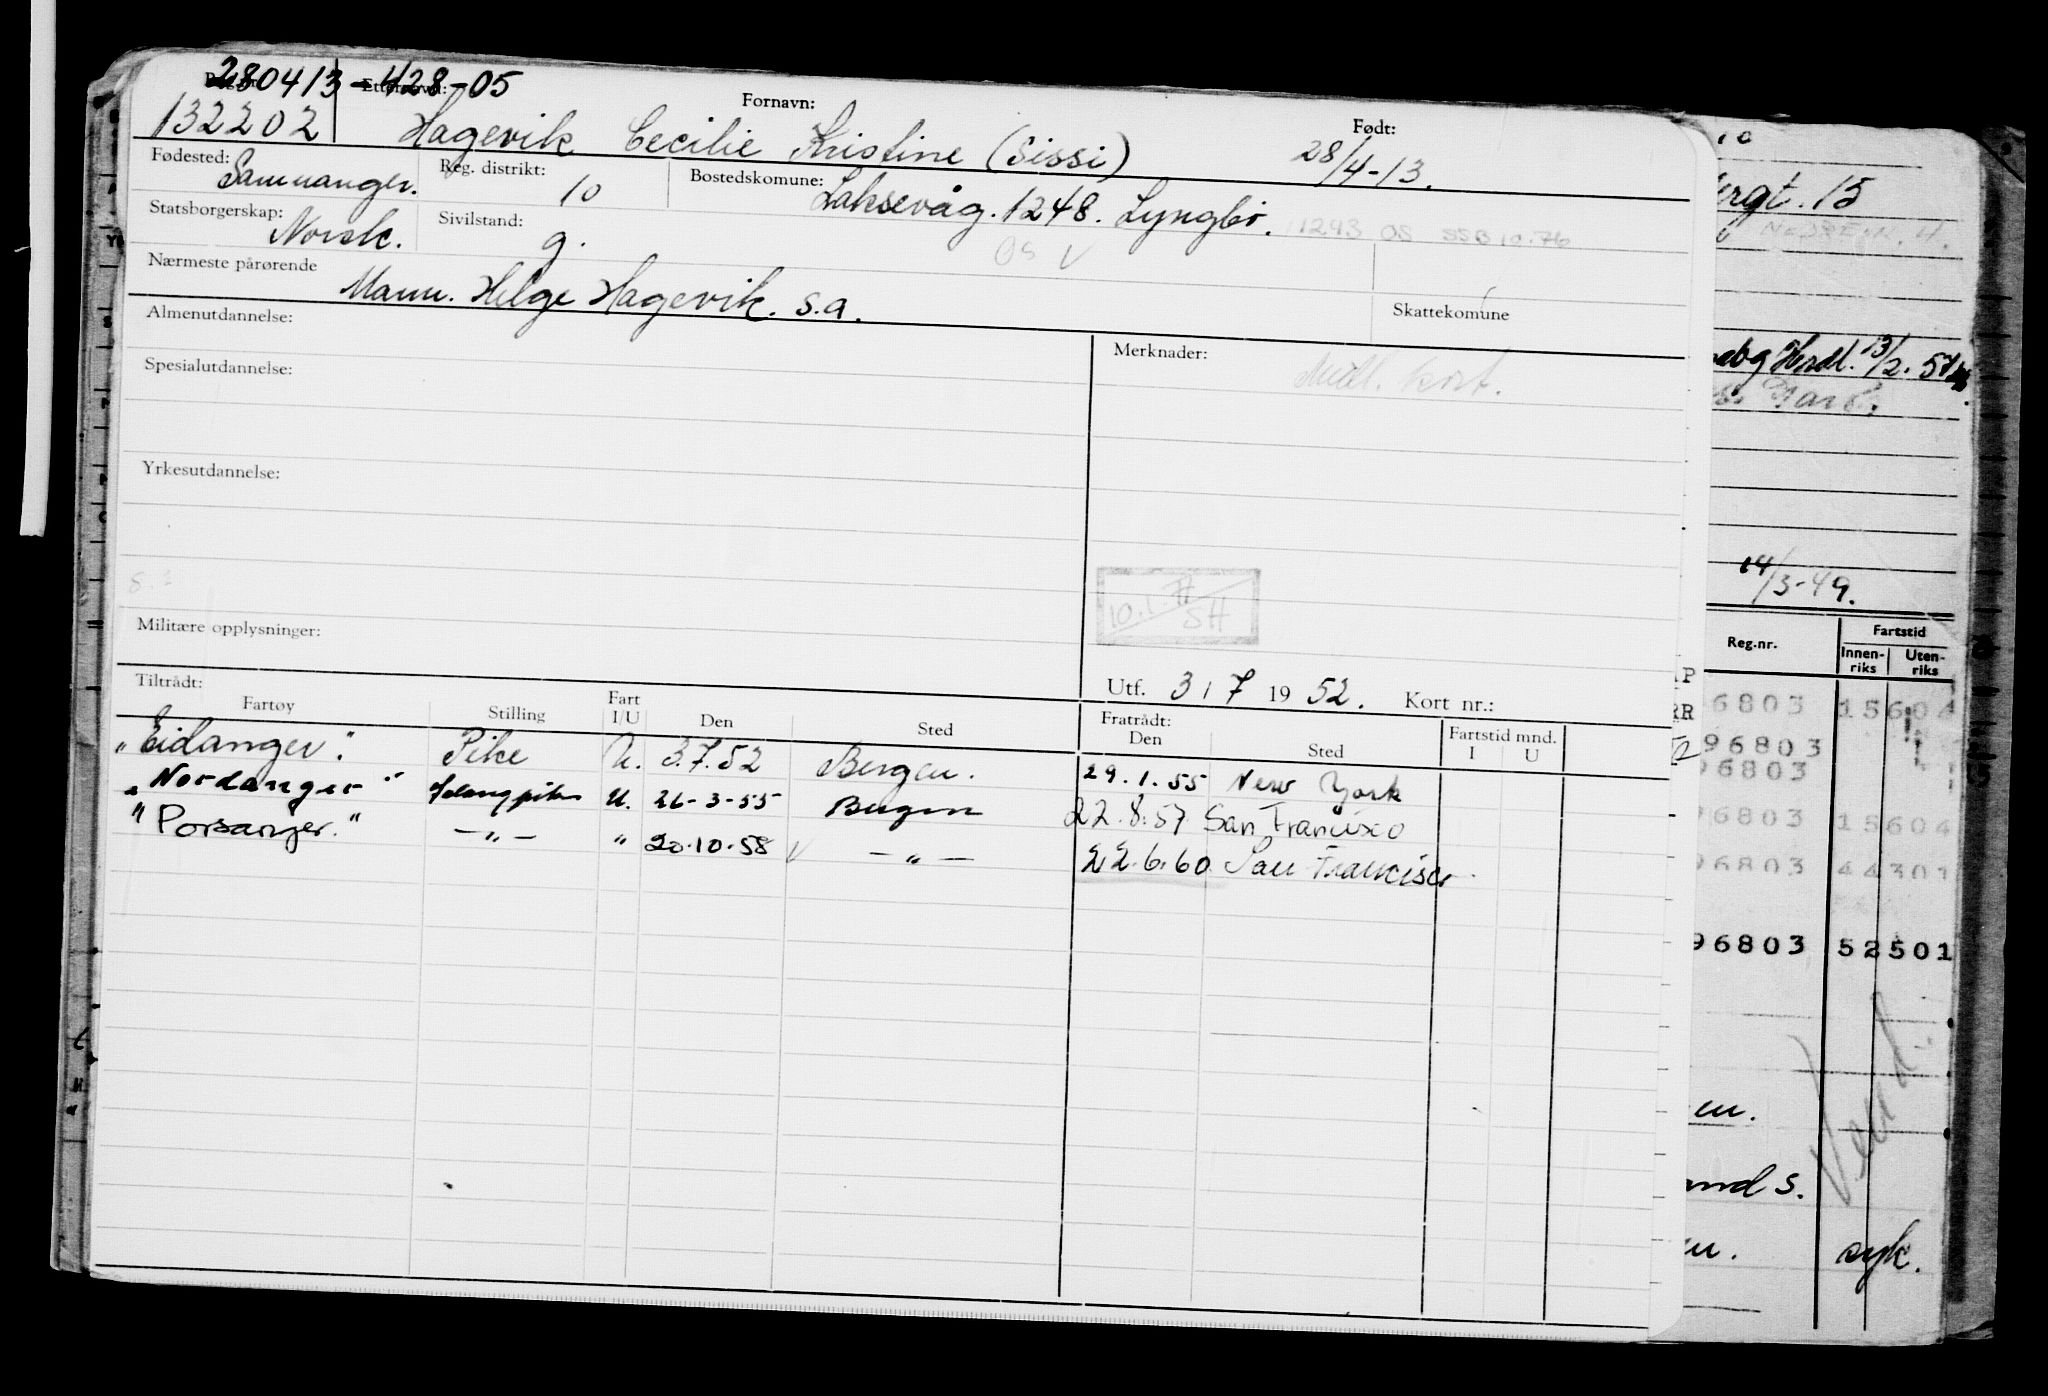 280413-428-05
132202 Etternavn: Hagevik Cecilie Fornavn: Kristine (Sissi) Født: 28/4-13.
Fødested: Samnanger. Reg. distrikt: 10 Bostedskomune: Laksevåg. 1248. Lyngbø. 1243 OS SSB 10.76
Statsborgerskap: Norsk. Sivilstand: g. OS V
Nærmeste pårørende Mann. Helge Hagevik. s.a. Skattekomune
Almenutdannelse:
Merknader: Mell. kort.
Spesialutdannelse:
Yrkesutdannelse:
Militære opplysninger:
Utf. 3/7 1952. Kort nr.:
Tiltrådt: Fratrådt:
Fartøy Stilling Fart I/U Den Sted Den Sted Fartstid mnd. I U
"Eidanger". Pike U. 3.7.52 Bergen. 29.1.55 New York
"Nordanger" U. 26-3-55 Bergen 22.8.57 San Francisco
"Porsanger." —„— „ 20.10.58 V —„— 22.6.60 San Francisco
15
Herdl. 13/2.
14/3-49.
Reg.nr. Fartstid
Innen-riks Uten-riks
6803 15604
96803
96803
96803 15604
96803 44301
96803 52501
en.
and s.
syk.